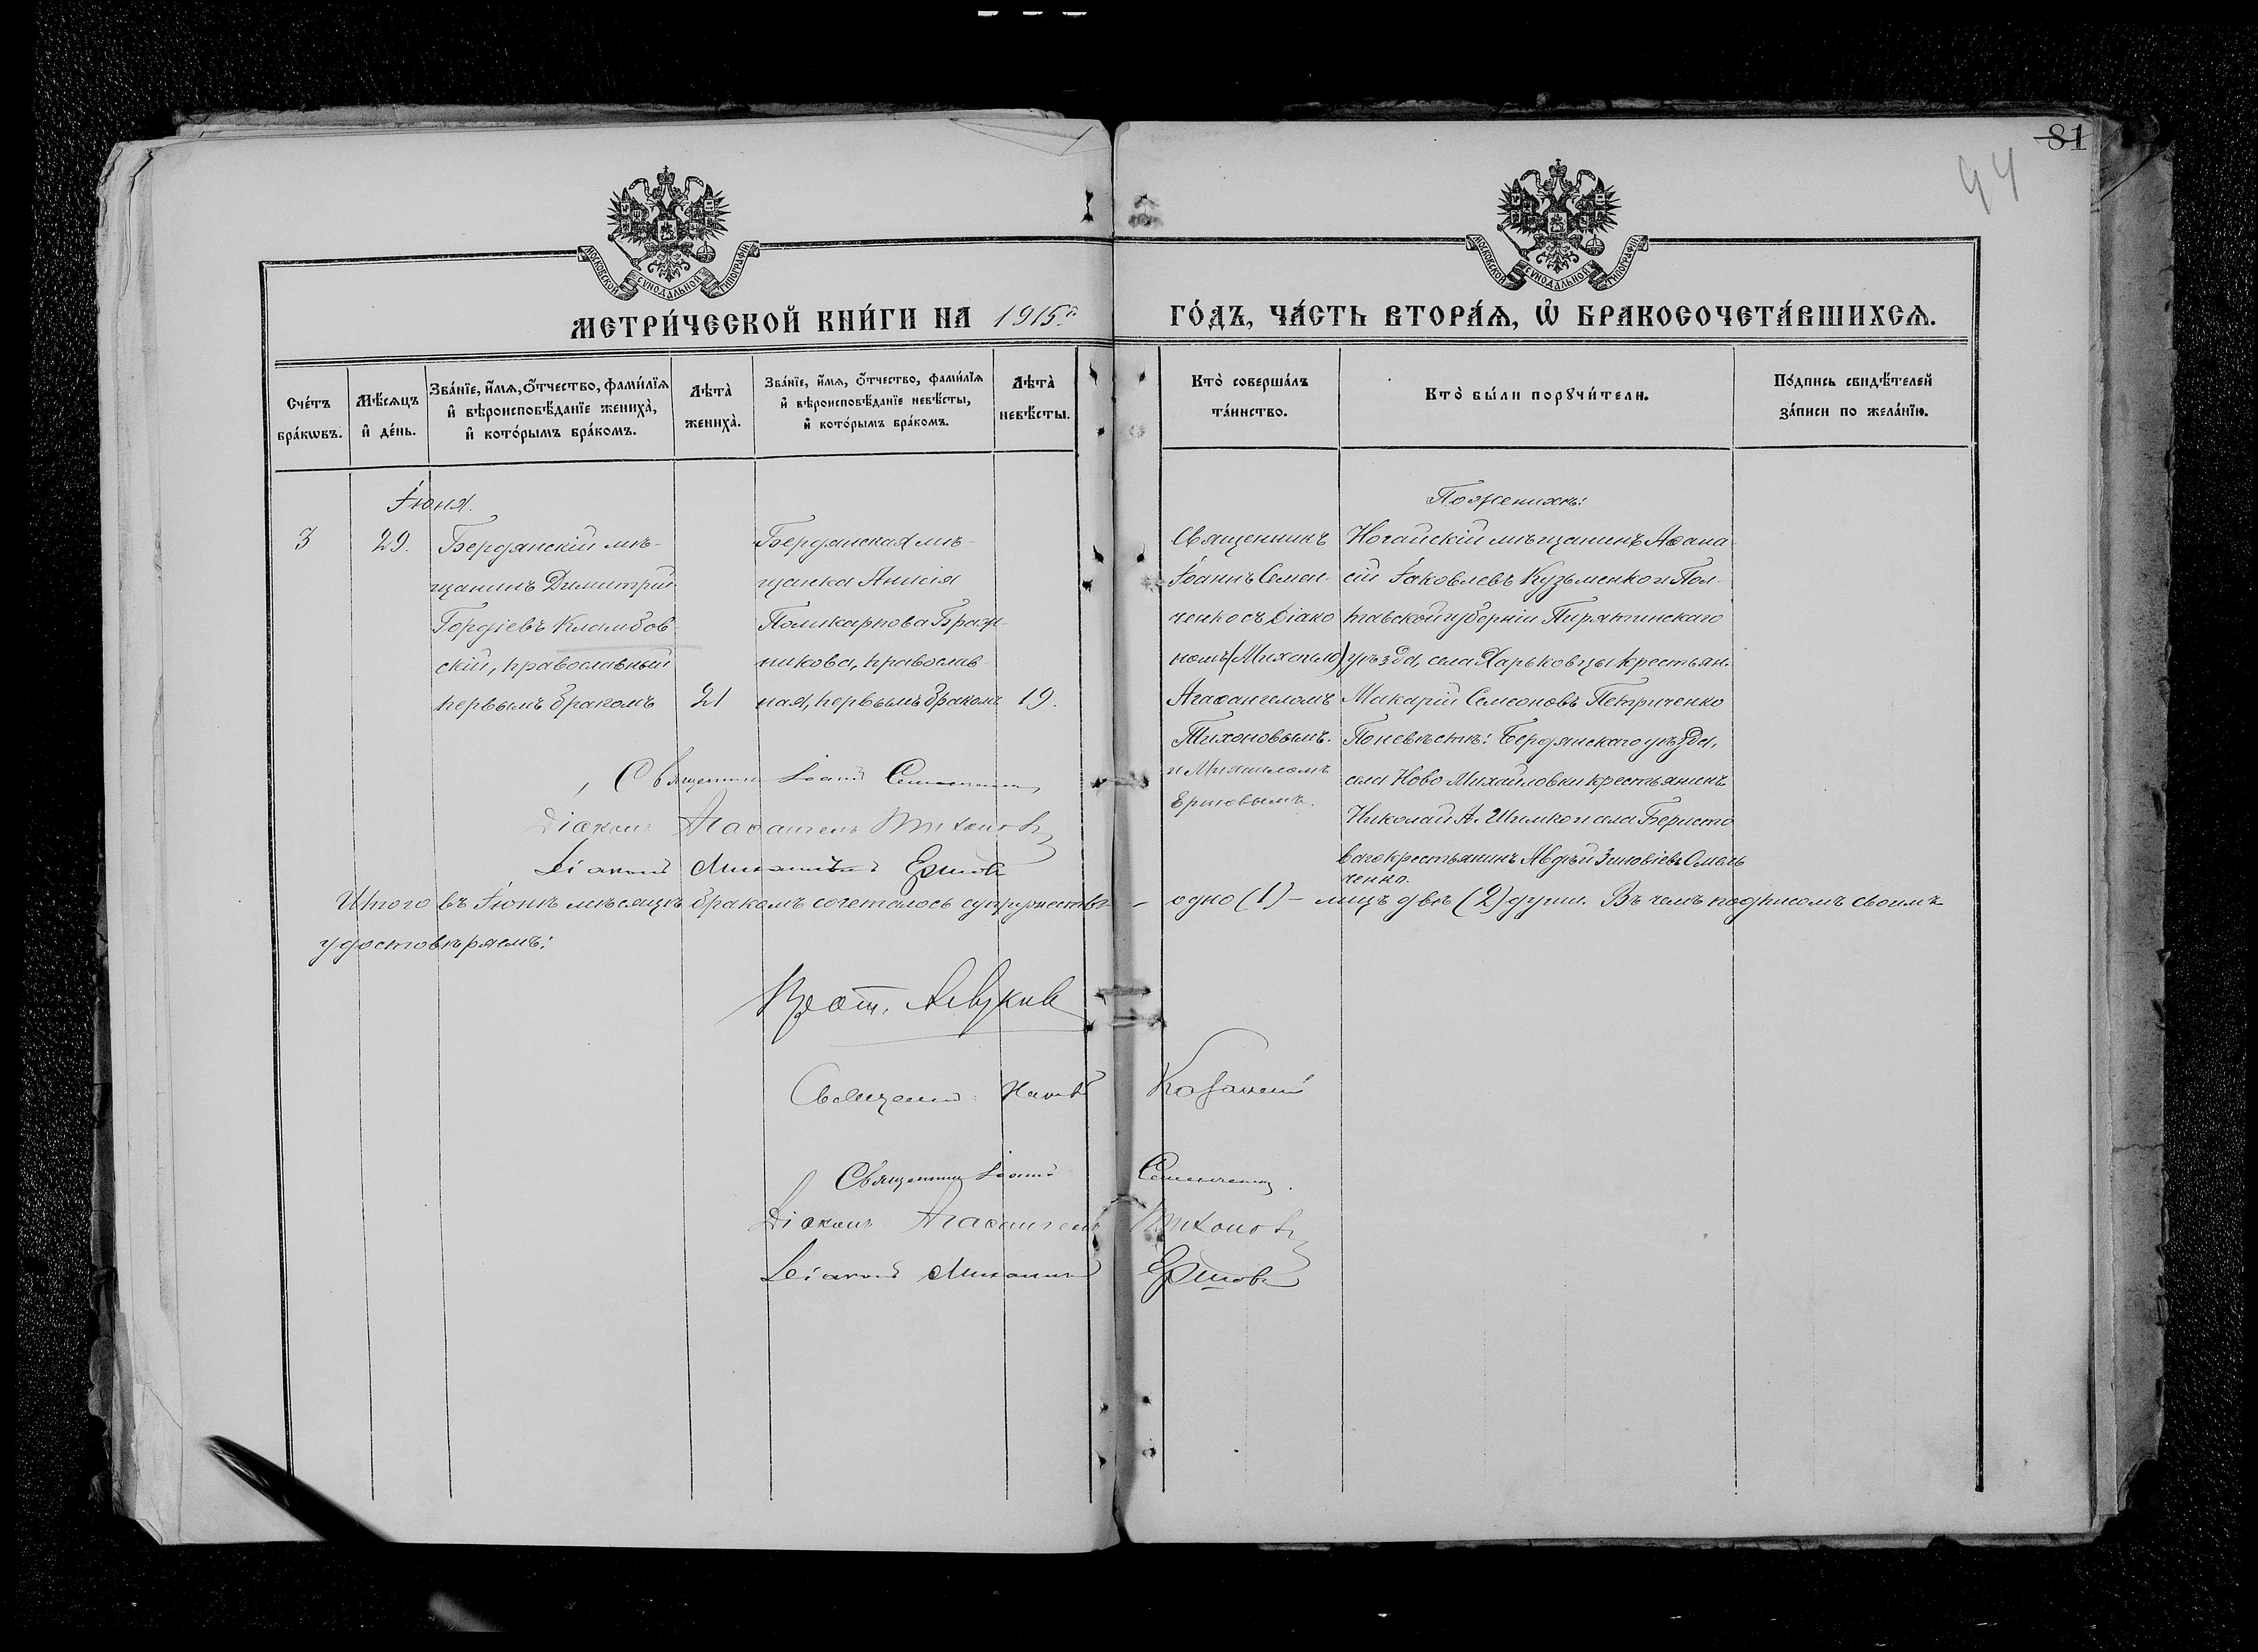 81
94
МОСКОВСКОЙ СѴНОДАЛЬНОЙ ТИПОГРАФІИ
МОСКОВСКОЙ СѴНОДАЛЬНОЙ ТИПОГРАФІИ
МЕТРИ́ЧЕСКОЙ КНИ́ГИ НА 1915й ГО́ДЪ, ЧА́СТЬ ВТОРА́Ѧ, Ѽ БРАКОСОЧЕТА́ВШИХСѦ.
Сче́тъ бра́кѡвъ.
Мѣ́сѧцъ и҆ де́нь.
Зва́нїе, и҆́мѧ, ѻ҆́тчество, фами́лїѧ
и҆ вѣроисповѣ́данїе жениха̀,
и҆ кото́рымъ бра́комъ.
Лѣта̀ жениха̀.
Зва́нїе, и҆́мѧ, ѻ҆́тчество, фами́лїѧ
и҆ вѣроисповѣ́данїе невѣ́сты,
и҆ кото́рымъ бра́комъ.
Лѣта̀ невѣ́сты.
Кто̀ соверша́лъ
та́инство.
Кто̀ бы́ли порꙋчи́тели.
По́дпись свидѣ́телей
за́писи по жела́нїю.
Іюня.
3
29.
Бердянскій мѣ-
щанинъ Димитрій
Гордіевъ Кламбов-
скій, православный
первымъ бракомъ
21
Бердянская мѣ-
щанка Анисія
Поликарпова Браж-
никова, православ-
ная, первымъ бракомъ
19.
Священникъ
Іоаннъ Семен-
ченко съ Діако
номъ (Михаило)
Агаѳангеломъ
Тихоновымъ.
и Михаиломъ
Ершовымъ.
По женихѣ:
Ногайскій мѣщанинъ Аѳана-
сій Іаковлевъ Кузьменко и Пол-
тавской губерніи Пирятинскаго
уѣзда, села Харьковцы крестьян.
Макарій Симеоновъ Петриченко
По невѣстѣ: Бердянскаго уѣзда,
села Ново Михайловки крестьянинъ
Николай А. Шимко и села Беристо
ваго крестьянинъ Авдѣй Зиновіевъ Омель
ченко.
Священникъ Іоаннъ Семенченко
Діаконъ Агаѳангелъ Тихоновъ
Діаконъ Михаилъ Ершовъ
Итого въ Іюнѣ мѣсяцѣ бракомъ сочеталось супружество - одно (1) - лицъ двѣ (2) души. Въ чемъ подписомъ своимъ
удостовѣряемъ:
Прот.
Священникъ
Священникъ Іоаннъ Семенченко.
Діаконъ Агаѳангелъ Тихоновъ
Діаконъ Михаилъ Ершовъ